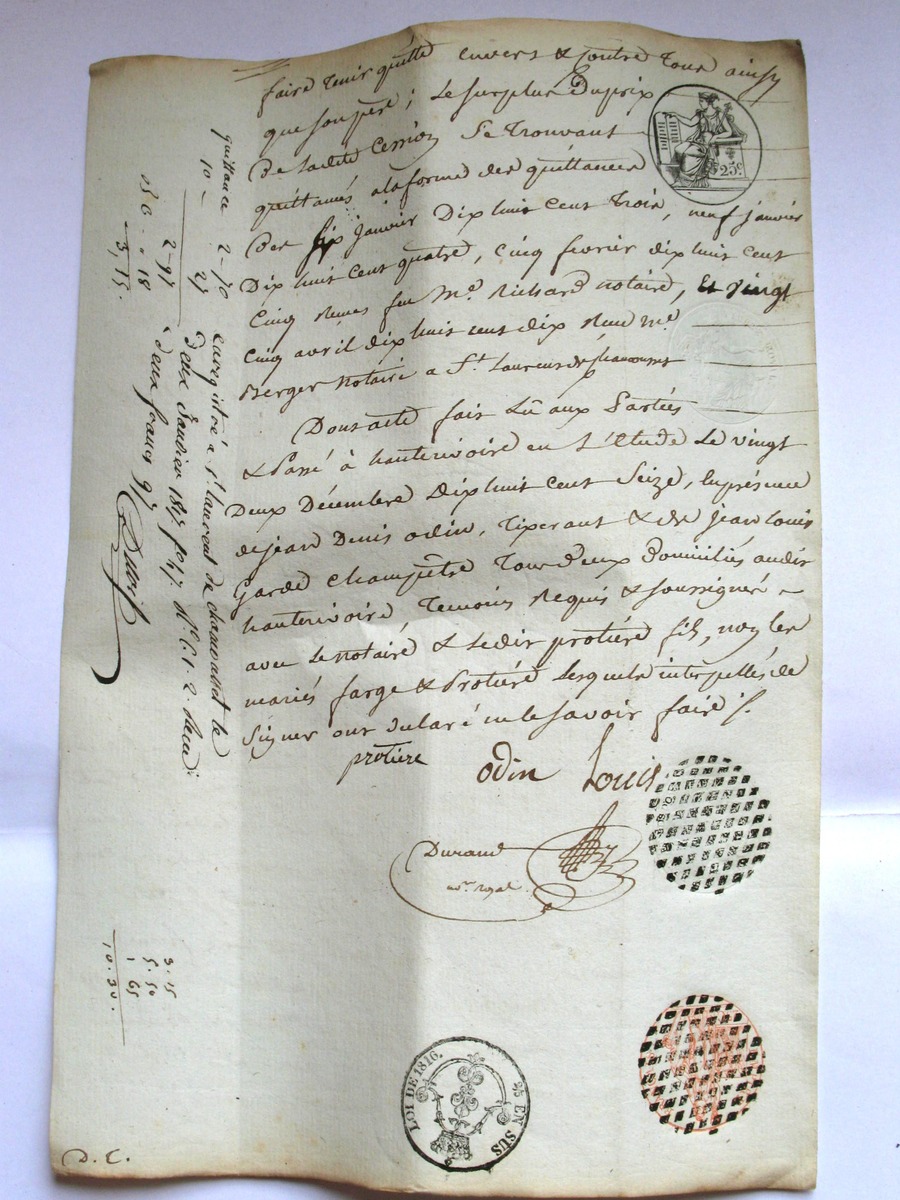 faire tenir quitte envers & contre tous ainsy
que son père ; Le surplus du prix
De ladite Cession Se trouvant
quittancé a la forme des quittances
Des six janvier Dix huit cent trois, neuf janvier
Dix huit cent quatre, cinq fevrier dix huit cent
Cinq Reçues feu Me. Richard notaire, & vingt
cinq avril dix huit cent dix Reçue Me.
Berger Notaire a St. Laurent de chamousset
Dont acte fait Lû aux Parties
& Passé à hauterivoire en L'Etude Le vingt
Deux Décembre Dix huit cent Seize, En présence
de jean Denis odin, & de jean Louis
Garde Champêtre Tous deux Domiciliés audit
hauterivoire Temoins Requis & soussignés
avec Le notaire & Ledit protière fils, non les
mariés farge & Protière Lesquels interpellés de
Signer ont déclaré ne le savoir faire ./.
protière
odin Louis
Durand
nore. royal
25c
quittance 2-70
10 - 27
2-97
18
3,15.
Enregistré à St. Laurent de chamousset le
Deux Janvier 1817 fo. 47. Ro. C. 1. 2. Reçu
deux francs 97
3.15
5.50
1 65
10.30.
LOI DE 1816.
EN SUS
D. C.